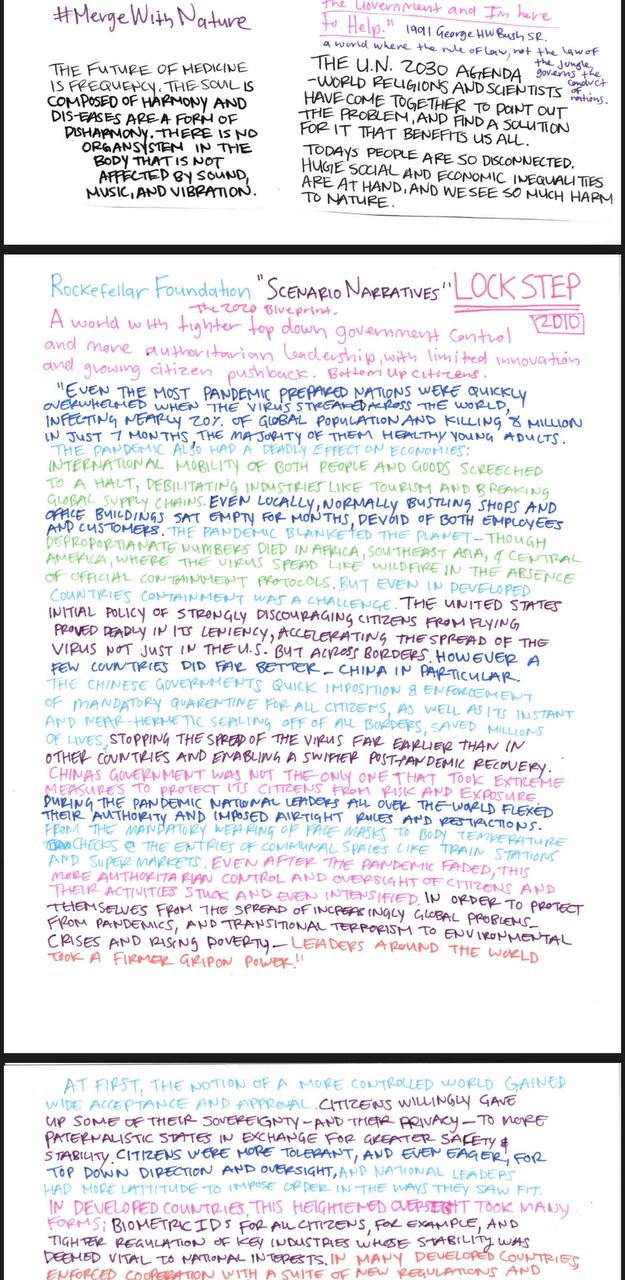 #MergeWithNature
THE FUTURE OF MEDICINE
IS FREQUENCY. THE SOUL IS
COMPOSED OF HARMONY AND
DIS-EASES ARE A FORM OF
DISHARMONY. THERE IS NO
ORGANSYSTEM IN THE
BODY THAT IS NOT
AFFECTED BY SOUND,
MUSIC, AND VIBRATION.
the Government and I'm here
to Help." 1991 George HW Bush SR.
a world where the rule of law, not the law of
the jungle,
governs the
conduct
of
nations.
THE U.N. 2030 AGENDA
-WORLD RELIGIONS AND SCIENTISTS
HAVE COME TOGETHER TO POINT OUT
THE PROBLEM, AND FIND A SOLUTION
FOR IT THAT BENEFITS US ALL.
TODAYS PEOPLE ARE SO DISCONNECTED.
HUGE SOCIAL AND ECONOMIC INEQUALITIES
ARE AT HAND, AND WE SEE SO MUCH HARM
TO NATURE.
Rockefellar Foundation "SCENARIO NARRATIVES" LOCK STEP
The 2020 Blueprint.
2010
A world with tighter top down government control
and more authoritarian leadership, with limited innovation
and growing citizen pushback. Bottom Up Citizens.
"EVEN THE MOST PANDEMIC PREPARED NATIONS WERE QUICKLY
OVERWHELMED WHEN THE VIRUS STREAKED ACROSS THE WORLD,
INFECTING NEARLY 20% OF GLOBAL POPULATION AND KILLING 8 MILLION
IN JUST 7 MONTHS, THE MAJORITY OF THEM HEALTHY YOUNG ADULTS.
THE PANDEMIC ALSO HAD A DEADLY EFFECT ON ECONOMIES:
INTERNATIONAL MOBILITY OF BOTH PEOPLE AND GOODS SCREECHED
TO A HALT, DEBILITATING INDUSTRIES LIKE TOURISM AND BREAKING
GLOBAL SUPPLY CHAINS. EVEN LOCALLY, NORMALLY BUSTLING SHOPS AND
OFFICE BUILDINGS SAT EMPTY FOR MONTHS, DEVOID OF BOTH EMPLOYEES
AND CUSTOMERS. THE PANDEMIC BLANKETED THE PLANET-THOUGH
DISPROPORTIANATE NUMBERS DIED IN AFRICA, SOUTHEAST ASIA, & CENTRAL
AMERICA, WHERE THE VIRUS SPEAD LIKE WILDFIRE IN THE ABSENCE
OF OFFICIAL CONTAINMENT PROTOCOLS. BUT EVEN IN DEVELOPED
COUNTRIES CONTAINMENT WAS A CHALLENGE. THE UNITED STATES
INITIAL POLICY OF STRONGLY DISCOURAGING CITIZENS FROM FLYING
PROVED DEADLY IN ITS LENIENCY, ACCELERATING THE SPREAD OF THE
VIRUS NOT JUST IN THE U.S. BUT ACROSS BORDERS. HOWEVER A
FEW COUNTRIES DID FAR BETTER - CHINA IN PARTICULAR.
THE CHINESE GOVERNMENTS QUICK IMPOSITION & ENFORCEMENT
OF MANDATORY QUARENTINE FOR ALL CITIZENS, AS WELL AS ITS INSTANT
AND NEAR-HERMETIC SEALING OFF OF ALL BORDERS, SAVED MILLIONS
OF LIVES, STOPPING THE SPRED OF THE VIRUS FAR EARLIER THAN IN
OTHER COUNTRIES AND ENABLING A SWIFTER POST-PANDEMIC RECOVERY.
CHINAS GOVERNMENT WAS NOT THE ONLY ONE THAT TOOK EXTREME
MEASURES TO PROTECT ITS CITIZENS FROM RISK AND EXPOSURE
DURING THE PANDEMIC NATIONAL LEADERS ALL OVER THE WORLD FLEXED
THEIR AUTHORITY AND IMPOSED AIRTIGHT RULES AND RESTRICTIONS.
FROM THE MANDATORY WEARING OF FACE MASKS TO BODY TEMPERATURE
CHECKS @ THE ENTRIES OF COMMUNAL SPACES LIKE TRAIN STATIONS
AND SUPER MARKETS. EVEN AFTER THE PANDEMIC FADED, THIS
MORE AUTHORITARIAN CONTROL AND OVERSIGHT OF CITIZENS AND
THEIR ACTIVITIES STUCK AND EVEN INTENSIFIED. IN ORDER TO PROTECT
THEMSELVES FROM THE SPREAD OF INCREASINGLY GLOBAL PROBLEMS-
FROM PANDEMICS, AND TRANSITIONAL TERRORISM TO ENVIRONMENTAL
CRISES AND RISING POVERTY - LEADERS AROUND THE WORLD
TOOK A FIRMER GRIP ON POWER."
AT FIRST, THE NOTION OF A MORE CONTROLLED WORLD GAINED
WIDE ACCEPTANCE AND APPROVAL. CITIZENS WILLINGLY GAVE
UP SOME OF THEIR SOVEREIGNTY-AND THEIR PRIVACY-TO MORE
PATERNALISTIC STATES IN EXCHANGE FOR GREATER SAFETY &
STABILITY. CITIZENS WERE MORE TOLERANT, AND EVEN EAGER, FOR
TOP DOWN DIRECTION AND OVERSIGHT, AND NATIONAL LEADERS
HAD MORE LATTITUDE TO IMPOSE ORDER IN THE WAYS THEY SAW FIT.
IN DEVELOPED COUNTRIES, THIS HEIGHTENED OVERSEIGHT TOOK MANY
FORMS; BIOMETRIC IDS FOR ALL CITIZENS, FOR EXAMPLE, AND
TIGHTER REGULATION OF KEY INDUSTRIES WHOSE STABILITY WAS
DEEMED VITAL TO NATIONAL INTERESTS. IN MANY DEVELOPED COUNTRIES,
ENFORCED COOPERATION WITH A SUITE OF NEW REGULATIONS AND